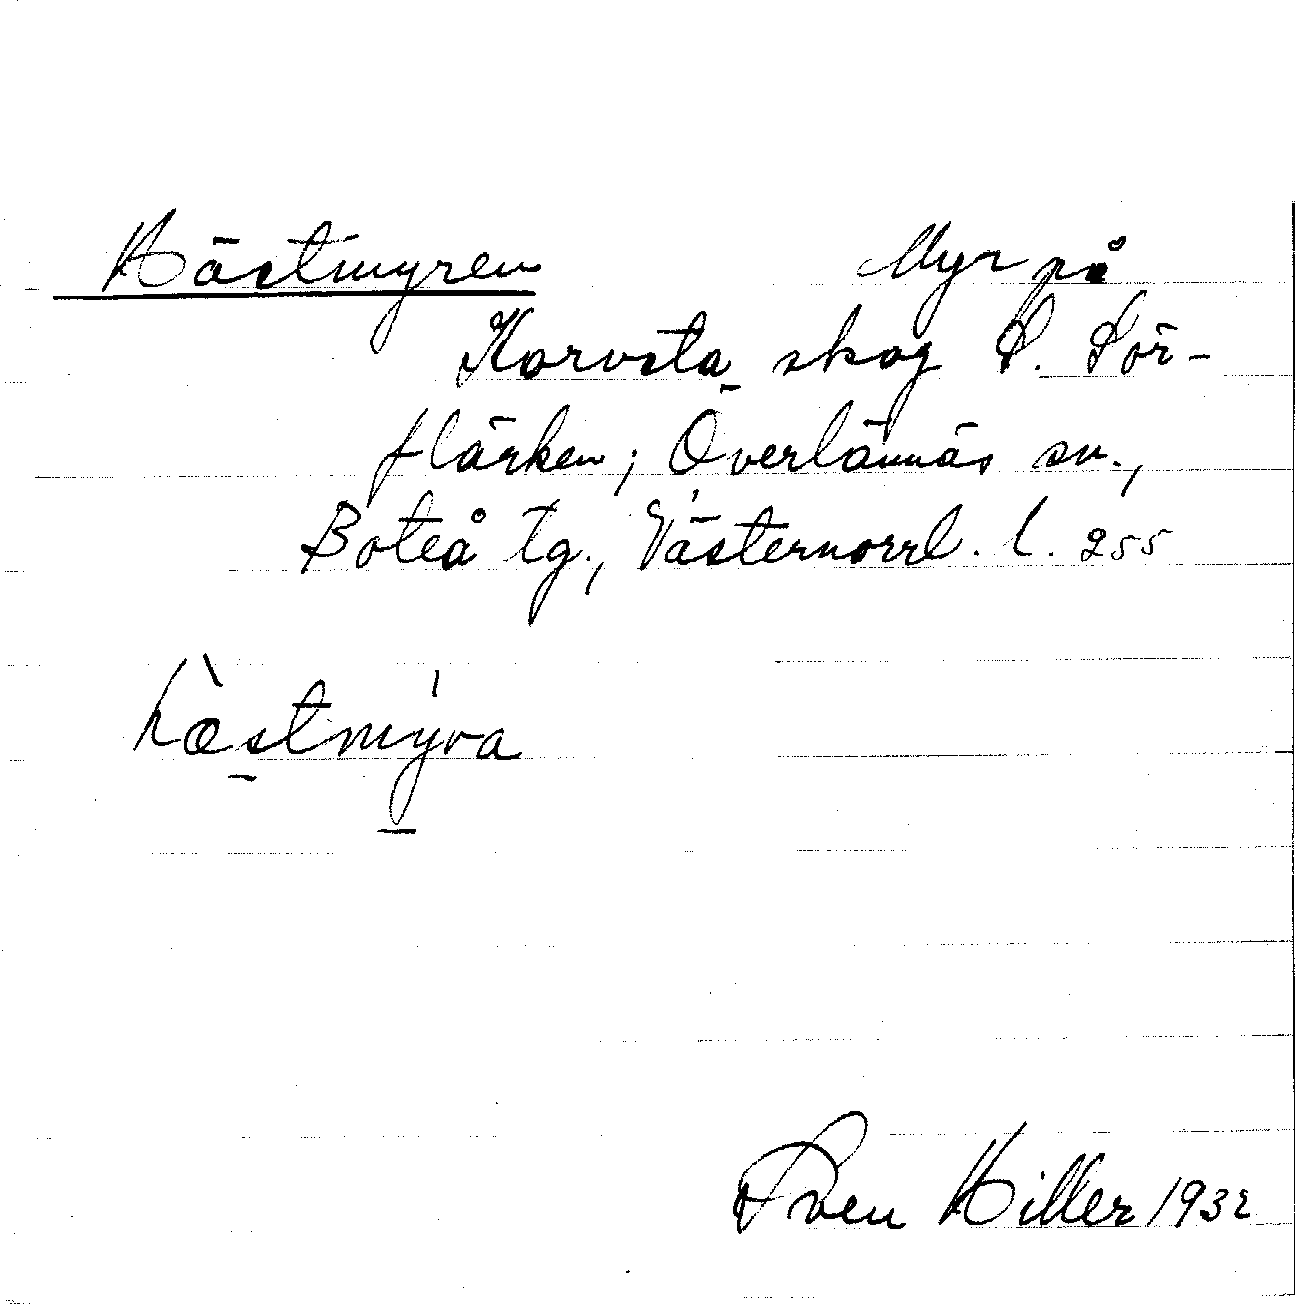 Hästmyren Myr på
Korvsta skog S. Sör-
flärken; Överlännäs sn.,
Boteå tg., Västernorrl. l. 255
hæ̀stmy̍ra
Sven Hiller 1932